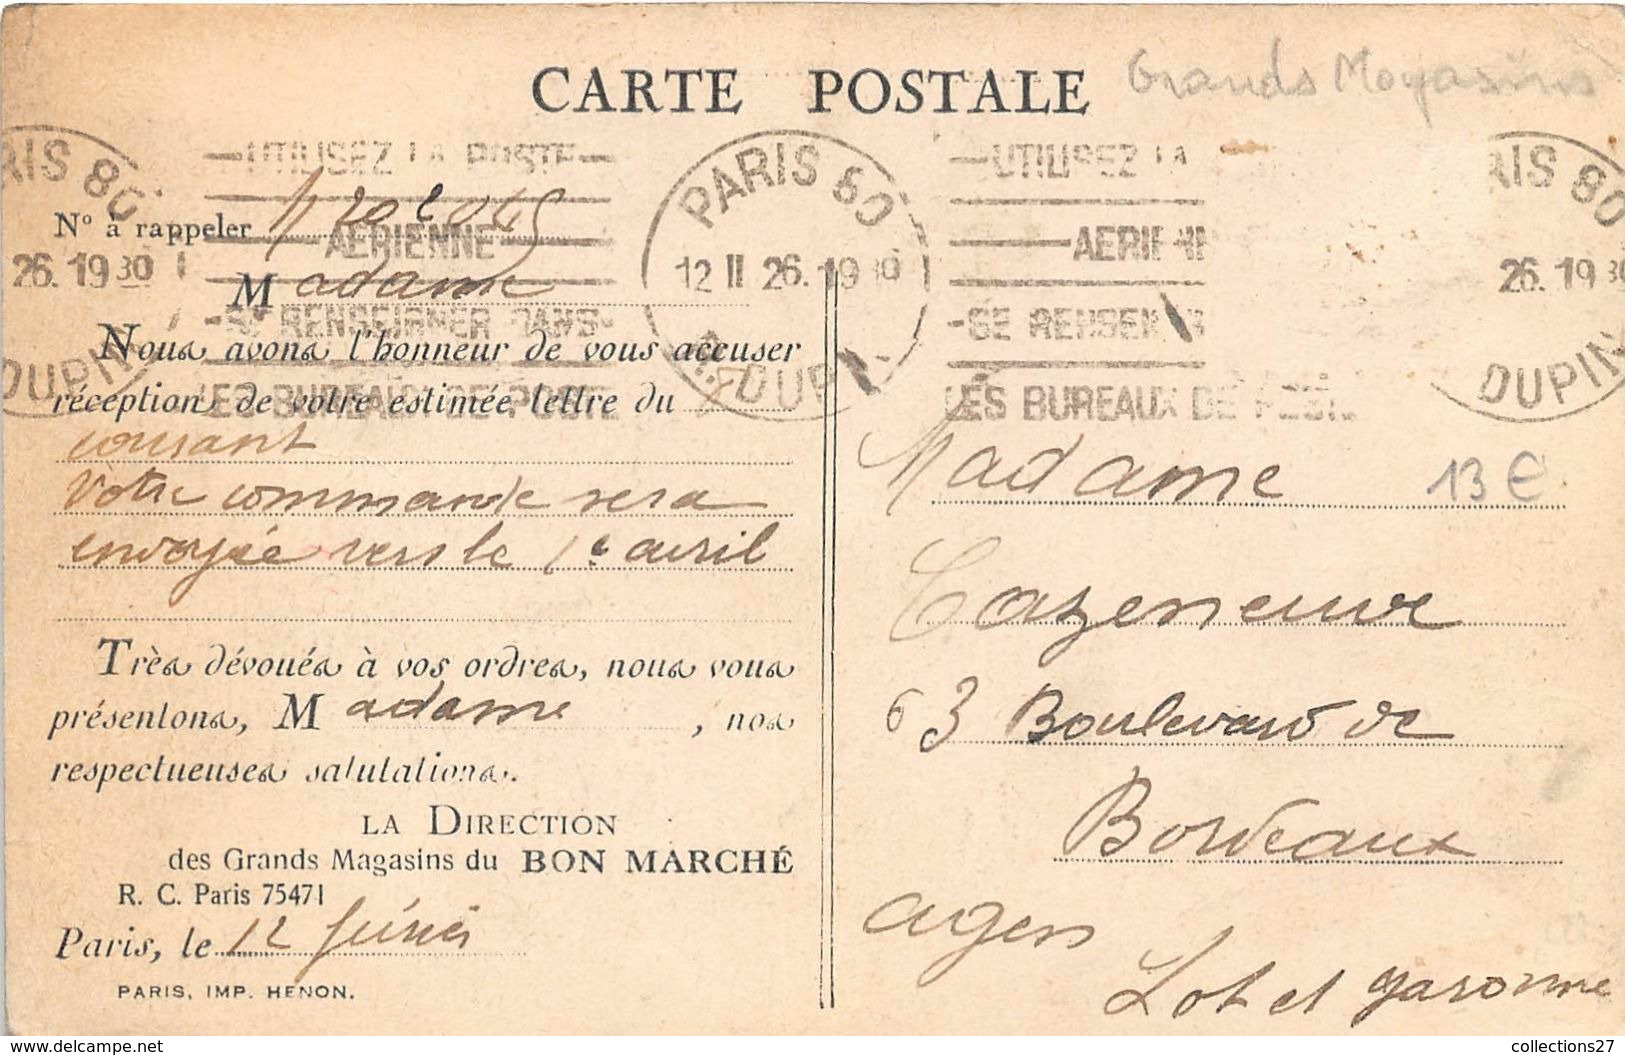 CARTE POSTALE
Grands Magasins
UTILISEZ LA POSTE
AERIENNE
SE RENSEIGNER DANS
LES BUREAUX DE POSTE
PARIS 60
12 II 26. 1930
R. DUPIN
UTILISEZ LA
AERIENNE
LES BUREAUX DE POSTE
26. 1930
DUPIN
N° à rappeler
Madame
Nous avons l'honneur de vous accuser
réception de votre estimée lettre du
courant
Votre commande sera
envoyée vers le 1e avril
Très dévoués à vos ordres, nous vous
présentons, Madame, nos
respectueuses salutations.
LA DIRECTION
des Grands Magasins du BON MARCHÉ
R. C. Paris 75471
Paris, le 12 février
PARIS, IMP. HENON.
Madame
13 €
Cazeneuve
63 Boulevard de
Bordeaux
Agen
Lot et garonne
collections27